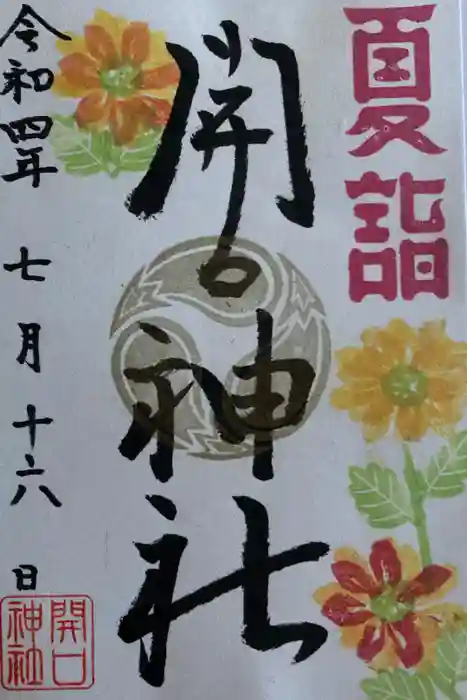 夏詣
開口神社
令和四年 七月十六日
開口
神社